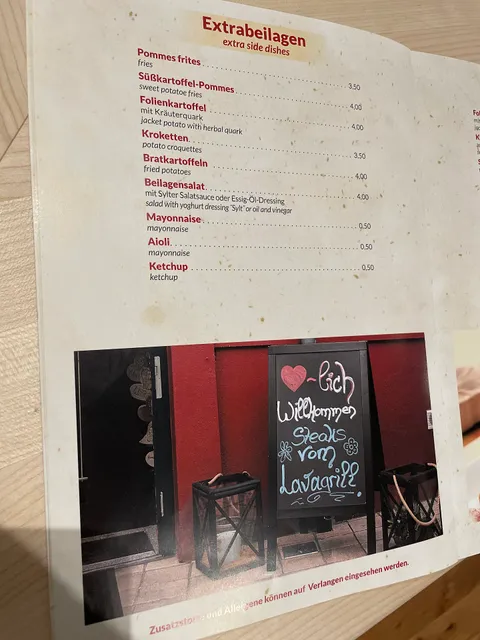 Extrabeilagen
extra side dishes
Pommes frites 3,50
fries
Süßkartoffel-Pommes 4,00
sweet potatoe fries
Folienkartoffel 4,00
mit Kräuterquark
jacket potato with herbal quark
Kroketten 3,50
potato croquettes
Bratkartoffeln 4,00
fried potatoes
Beilagensalat 4,00
mit Sylter Salatsauce oder Essig-Öl-Dressing
salad with yoghurt dressing "Sylt" or oil and vinegar
Mayonnaise 0,50
mayonnaise
Aioli 0,50
mayonnaise
Ketchup 0,50
ketchup
-lich
Willkommen
Steaks
vom
Lavagrill!
Zusatzstoffe und Allergene können auf Verlangen eingesehen werden.